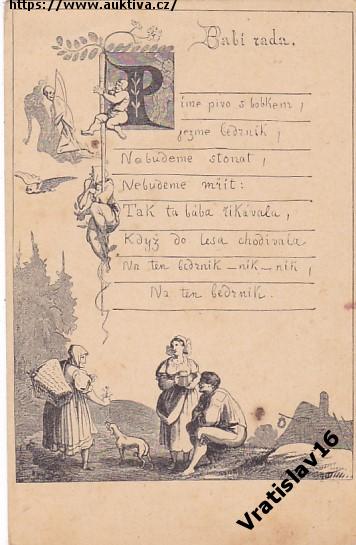 https://www.auktiva.cz/
Babí rada.
Píme pivo s bobkem,
jezme bedrník,
Nebudeme stonat,
Nebudeme mřít:
Tak ta bába říkávala,
Když do lesa chodívala
Na ten bedrník – ník – ník,
Na ten bedrník.
Vratislav16